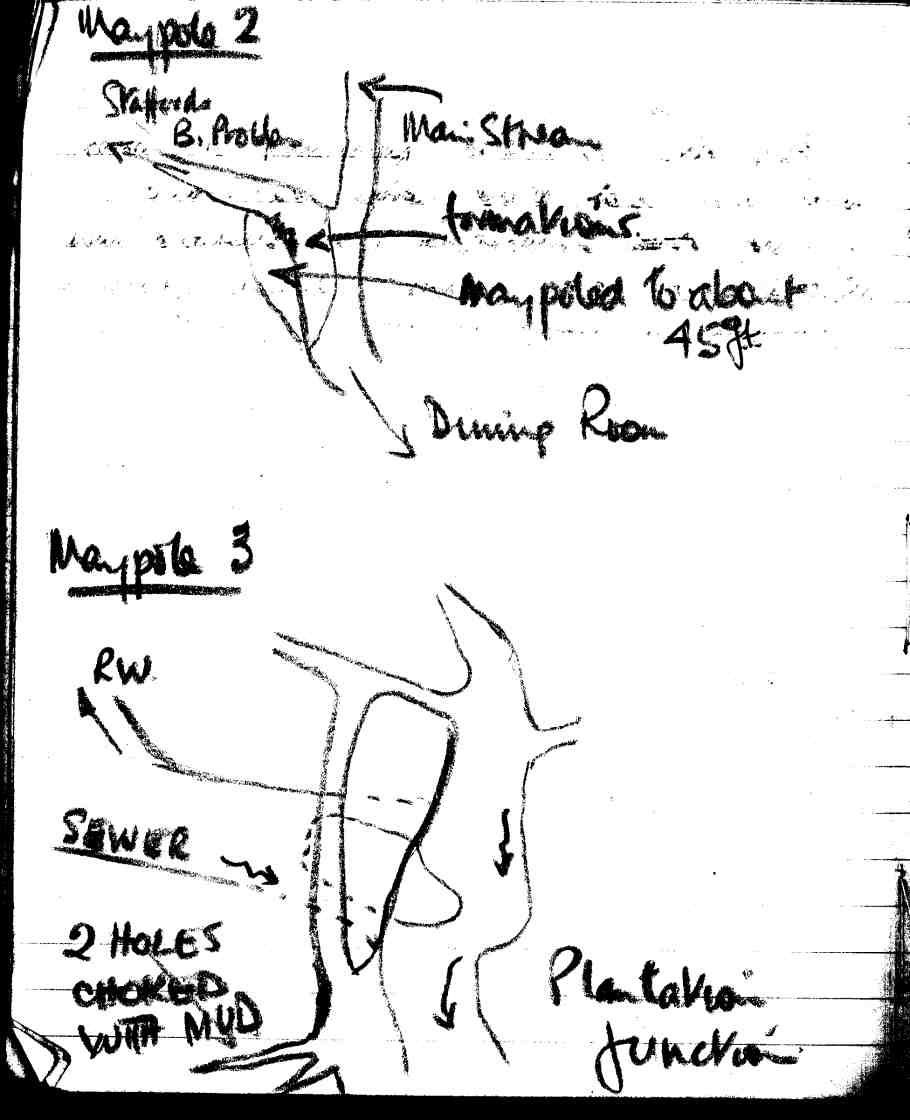 Maypole 2
Main Stream
formations.
Maypoled to about
45ft
Dining Room
Maypole 3
RW.
SEWER
2 HOLES
CHOKED
WITH MUD
Plantation
Junction